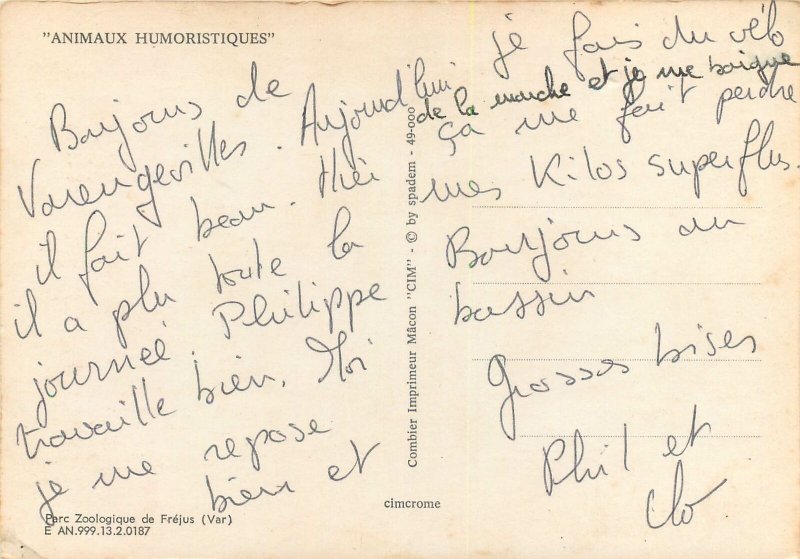 "ANIMAUX HUMORISTIQUES"
Bonjours de
Varengevilles. Aujourd'hui
il fait beau. Hier
il a plu toute la
journeé. Philippe
travaille bien. Moi
je me repose
bien et
Parc Zoologique de Fréjus (Var)
E AN.999.13.2.0187
Combier Imprimeur Mâcon "CIM" - © by spadem - 49-000
cimcrome
je fais du vélo
de la marche et je me baigne
ça me fait perdre
mes Kilos superflus.
Bonjours au
bassin
Grosses bises
Phil et
Clo